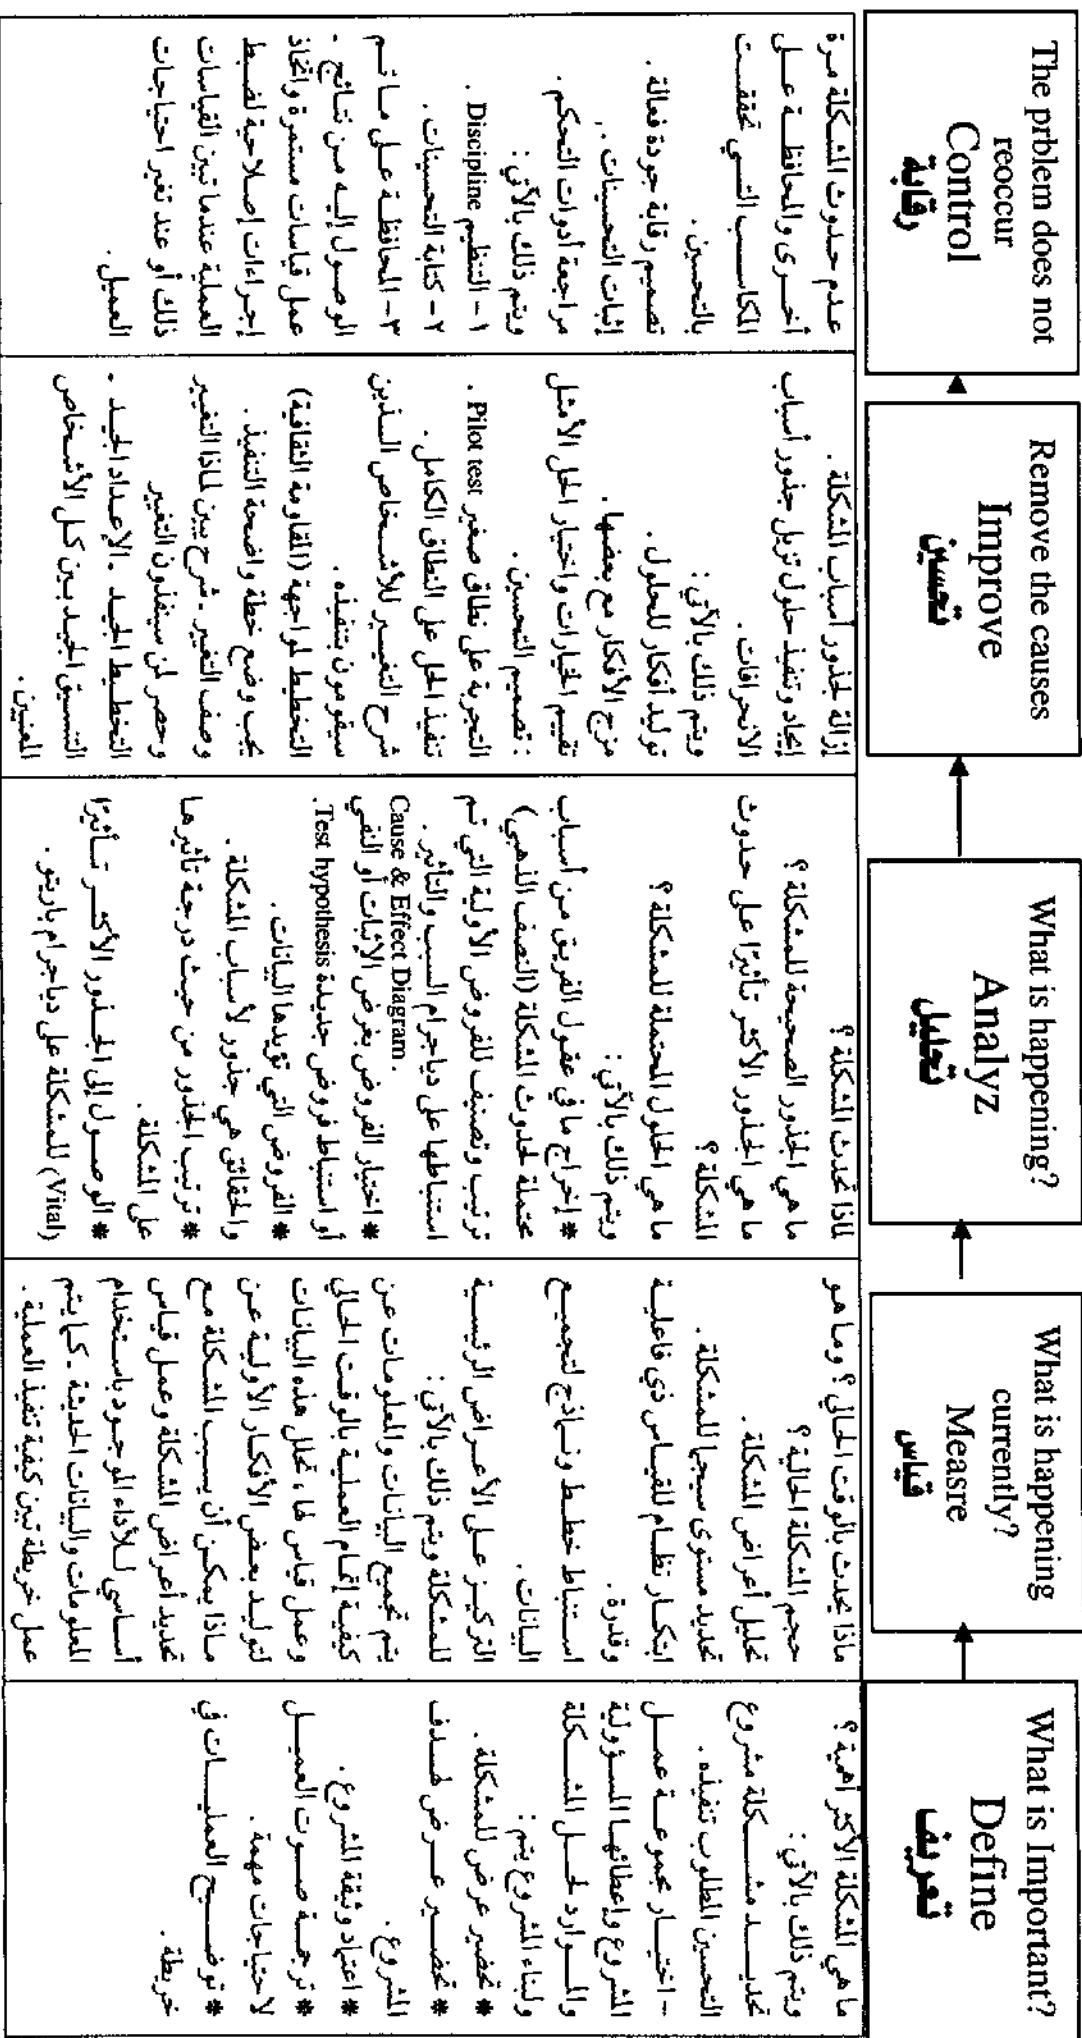 What is Important?
Define
تعريف
ما هي المشكلة الأكثر أهمية ؟
ويتم ذلك بالآتي :
تحديد مشكلة مشروع
التحسين المطلوب تنفيذه .
- اختيار مجموعة عمل
المشروع وإعطائها المسؤولية
والموارد لحل المشكلة
ولبناء المشروع يتم :
* تحضير عرض للمشكلة .
* تحضير عرض لهدف
المشروع .
* اعتماد وثيقة المشروع .
* ترجمة صوت العميل
لاحتياجات مهمة .
* توضيح العمليات في
خريطة .
What is happening
currently?
Measre
قياس
ماذا يحدث بالوقت الحالي ؟ وما هو
حجم المشكلة الحالية ؟
تحليل أعراض المشكلة .
تحديد مستوى سيجما للمشكلة .
ابتكار نظام للقياس ذي فاعلية
وقدرة .
استنباط خطط ونماذج لتجميع
البيانات .
التركيز على الأعراض الرئيسية
للمشكلة ويتم ذلك بالآتي :
يتم تجميع البيانات والمعلومات عن
كيفية إتمام العملية بالوقت الحالي
وعمل قياس لها ، تحلل هذه البيانات
لتوليد بعض الأفكار الأولية عن
ماذا يمكن أن يسبب المشكلة مع
تحديد أعراض المشكلة وعمل قياس
أساسي للأداء الموجود باستخدام
المعلومات والبيانات الحديثة . كما يتم
عمل خريطة تبين كيفية تنفيذ العملية .
What is happening?
Analyz
تحليل
لماذا تحدث المشكلة ؟
ما هي الجذور الصحيحة للمشكلة ؟
ما هي الجذور الأكثر تأثيرًا على حدوث
المشكلة ؟
ما هي الحلول المحتملة للمشكلة ؟
ويتم ذلك بالآتي :
* إخراج ما في عقول الفريق من أسباب
محتملة لحدوث المشكلة (النصف الذهبي)
ترتيب وتصنيف للفروض الأولية التي تم
استنباطها على دياجرام السبب والتأثير .
Cause & Effect Diagram .
* اختبار الفروض بغرض الإثبات أو النفي
أو استنباط فروض جديدة Test hypothesis.
* الفروض التي تؤيدها البيانات
والحقائق هي جذور لأسباب المشكلة .
* ترتيب الجذور من حيث درجة تأثيرها
على المشكلة .
* الوصول إلى الجذور الأكثر تأثيرًا
(Vital) للمشكلة على دياجرام باريتو .
Remove the causes
Improve
تحسين
إزالة لجذور أسباب المشكلة .
إيجاد وتنفيذ حلول تزيل جذور أسباب
الانحرافات .
ويتم ذلك بالآتي :
توليد أفكار للحلول .
مزج الأفكار مع بعضها .
تقييم الخيارات واختيار الحل الأمثل
: تصميم التحسين .
التجربة على نطاق صغير Pilot test .
تنفيذ الحل على النطاق الكامل .
شرح التغيير للأشخاص الذين
سيقومون بتنفيذه .
التخطيط لمواجهة (المقاومة الثقافية)
يجب وضع خطة واضحة التنفيذ .
وصف التغيير . شرح يبين لماذا التغيير
وحصر لمن سينفذون التغيير
التخطيط الجيد . الإعداد الجيد .
التنسيق الجيد بين كل الأشخاص
المعنيين .
The prblem does not
reoccur
Control
رقابة
عدم حدوث المشكلة مرة
أخرى والمحافظة على
المكاسب التي تحققت
بالتحسين .
تصميم رقابة جودة فعالة .
إثبات التحسينات .
مراجعة أدوات التحكم .
ويتم ذلك بالآتي :
١ - التنظيم Discipline .
٢ - كتابة التحسينات .
٣ - المحافظة على ما تم
الوصول إليه من نتائج .
عمل قياسات مستمرة واتخاذ
إجراءات إصلاحية لضبط
العملية عندما تبين القياسات
ذلك أو عند تغير احتياجات
العميل .